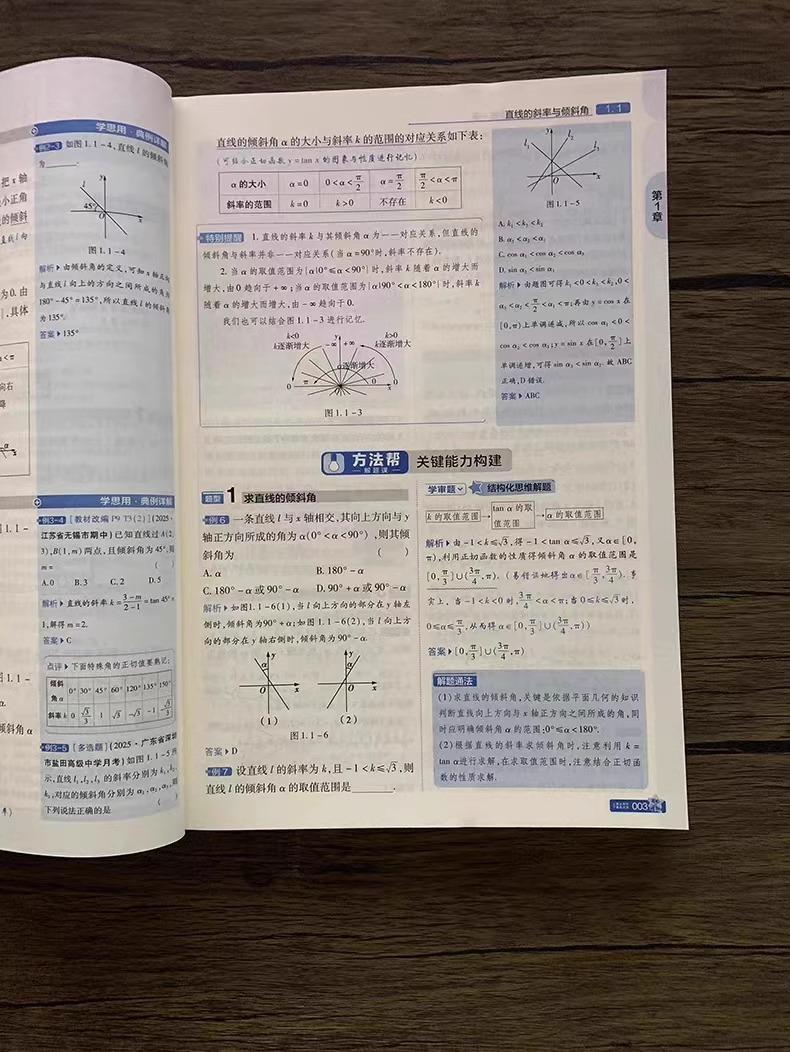 学思用·典例详解
例2-3 如图1.1-4,直线 l 的倾斜角
为______.
45°
O
x
图1.1-4
解析▶由倾斜角的定义,可知 x 轴正向
与直线 l 向上的方向之间所成的角为
180°-45°=135°,所以直线 l 的倾斜角
为135°.
答案▶135°
把 x 轴
小正角
的倾斜
直线 l 向
为0.由
学思用·典例详解
例3-4 [教材改编 P9 T3(2)][2025·
江苏省无锡市期中]已知直线过 A(2,
3),B(1,m)两点,且倾斜角为45°,则
m= ( )
A.0 B.3 C.2 D.5
解析▶直线的斜率 k=\frac{3-m}{2-1}=tan 45°=
1,解得 m=2.
答案▶C
点评▶下面特殊角的正切值要熟记:
倾斜角 α 0° 30° 45° 60° 120° 135° 150°
斜率 k 0 \frac{√3}{3} 1 √3 -√3 -1 -\frac{√3}{3}
例3-5 [多选题](2025·广东省深圳
市盐田高级中学月考)如图1.1-5所
示,直线 l₁,l₂,l₃ 的斜率分别为 k₁,k₂,
k₃,对应的倾斜角分别为 α₁,α₂,α₃,则
下列说法正确的是 ( )
直线的斜率与倾斜角 1.1
第1章
直线的倾斜角 α 的大小与斜率 k 的范围的对应关系如下表:
(可结合正切函数 y=tan x 的图象与性质进行记忆)
α 的大小 α=0 0<α<\frac{π}{2} α=\frac{π}{2} \frac{π}{2}<α<π
斜率的范围 k=0 k>0 不存在 k<0
特别提醒 1.直线的斜率 k 与其倾斜角 α 为一一对应关系,但直线的
倾斜角与斜率并非一一对应关系(当 α=90°时,斜率不存在).
2.当 α 的取值范围为{α|0°≤α<90°}时,斜率 k 随着 α 的增大而
增大,由0趋向于+∞;当 α 的取值范围为{α|90°<α<180°}时,斜率 k
随着 α 的增大而增大,由-∞趋向于0.
我们也可以结合图1.1-3进行记忆.
k<0 y k>0
k逐渐增大 -∞ +∞ k逐渐增大
α逐渐增大
0 π O x 0
图1.1-3
y
l₁ l₂
l₃
O x
图1.1-5
A. k₁<k₃<k₂
B. α₃<α₂<α₁
C. cos α₁<cos α₂<cos α₃
D. sin α₃<sin α₁
解析▶由题图可得 k₁<0<k₃<k₂,0<
α₃<α₂<\frac{π}{2}<α₁<π;再由 y=cos x 在
[0,π)上单调递减,所以 cos α₁<0<
cos α₂<cos α₃;y=sin x 在[0,\frac{π}{2}]上
单调递增,可得 sin α₃<sin α₂.故 ABC
正确,D 错误.
答案▶ABC
方法帮 关键能力构建
解题课
题型 1 求直线的倾斜角
例6 一条直线 l 与 x 轴相交,其向上方向与 y
轴正方向所成的角为 α(0°<α<90°),则其倾
斜角为 ( )
A. α B. 180°-α
C. 180°-α 或 90°-α D. 90°+α 或 90°-α
解析▶如图1.1-6(1),当 l 向上方向的部分在 y 轴左
侧时,倾斜角为90°+α;如图1.1-6(2),当 l 向上方
向的部分在 y 轴右侧时,倾斜角为90°-α.
y α O x
y α O x
(1) (2)
图1.1-6
答案▶D
例7 设直线 l 的斜率为 k,且-1<k≤√3,则
直线 l 的倾斜角 α 的取值范围是______.
学审题 结构化思维解题
k 的取值范围→tan α 的取值范围→α 的取值范围
解析▶由-1<k≤√3,得-1<tan α≤√3,又 α∈[0,
π),利用正切函数的性质得倾斜角 α 的取值范围是
[0,\frac{π}{3}]∪(\frac{3π}{4},π).(易错误地得出α∈[\frac{π}{3},\frac{3π}{4}).事
实上,当-1<k<0时,\frac{3π}{4}<α<π;当0≤k≤√3时,
0≤α≤\frac{π}{3},从而得 α∈[0,\frac{π}{3}]∪(\frac{3π}{4},π))
答案▶[0,\frac{π}{3}]∪(\frac{3π}{4},π)
解题通法
(1)求直线的倾斜角,关键是依据平面几何的知识
判断直线向上方向与 x 轴正方向之间所成的角,同
时应明确倾斜角 α 的范围:0°≤α<180°.
(2)根据直线的斜率求倾斜角时,注意利用 k=
tan α进行求解,在求取值范围时,注意结合正切函
数的性质求解.
003